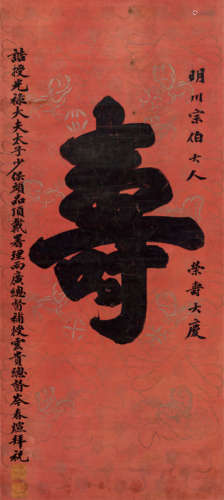 明川宗伯大人 榮壽大慶
壽
誥授光祿大夫太子少保頭品頂戴署理兩廣總督補授雲貴總督岑春煊拜祝